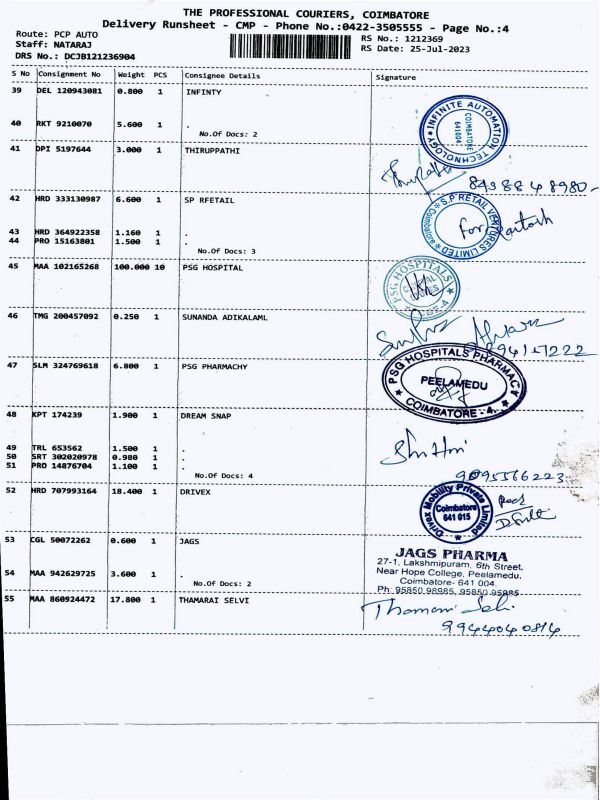 THE PROFESSIONAL COURIERS, COIMBATORE
Delivery Runsheet - CMP - Phone No.:0422-3505555 - Page No.:4
Route: PCP AUTO
Staff: NATARAJ
DRS No.: DCJB121236904
RS No.: 1212369
RS Date: 25-Jul-2023
S No Consignment No Weight PCS Consignee Details Signature
39 DEL 120943081 0.800 1 INFINTY
40 RKT 9210070 5.600 1 .
No.Of Docs: 2
INFINITE AUTOMATION TECHNOLOGY
COIMBATORE
641004
41 DPI 5197644 3.000 1 THIRUPPATHI
8438848980
42 HRD 333130987 6.600 1 SP RFETAIL
43 HRD 364922358 1.160 1 .
44 PRO 15163801 1.500 1 .
No.Of Docs: 3
S.P RETAIL VENTURES LIMITED
Coimbatore
for
45 MAA 102165268 100.000 10 PSG HOSPITAL
PSG HOSPITALS
46 TMG 200457092 0.250 1 SUNANDA ADIKALAML
47 SLM 324769618 6.800 1 PSG PHARMACHY
PSG HOSPITALS PHARMACY
PEELAMEDU
COIMBATORE - 4.
48 KPT 174239 1.900 1 DREAM SNAP
49 TRL 653562 1.500 1 .
50 SRT 302020978 0.980 1 .
51 PRO 14876704 1.100 1 .
No.Of Docs: 4
9095566223
52 HRD 707993164 18.400 1 DRIVEX
Drivex Mobility Private Limited
Coimbatore
641 015
53 CGL 50072262 0.600 1 JAGS
54 MAA 942629725 3.600 1 .
No.Of Docs: 2
JAGS PHARMA
27-1, Lakshmipuram, 6th Street,
Near Hope College, Peelamedu,
Coimbatore- 641 004.
Ph: 95850 98985, 95850 95985
55 MAA 860924472 17.800 1 THAMARAI SELVI
Thamarai Selvi
9944040814